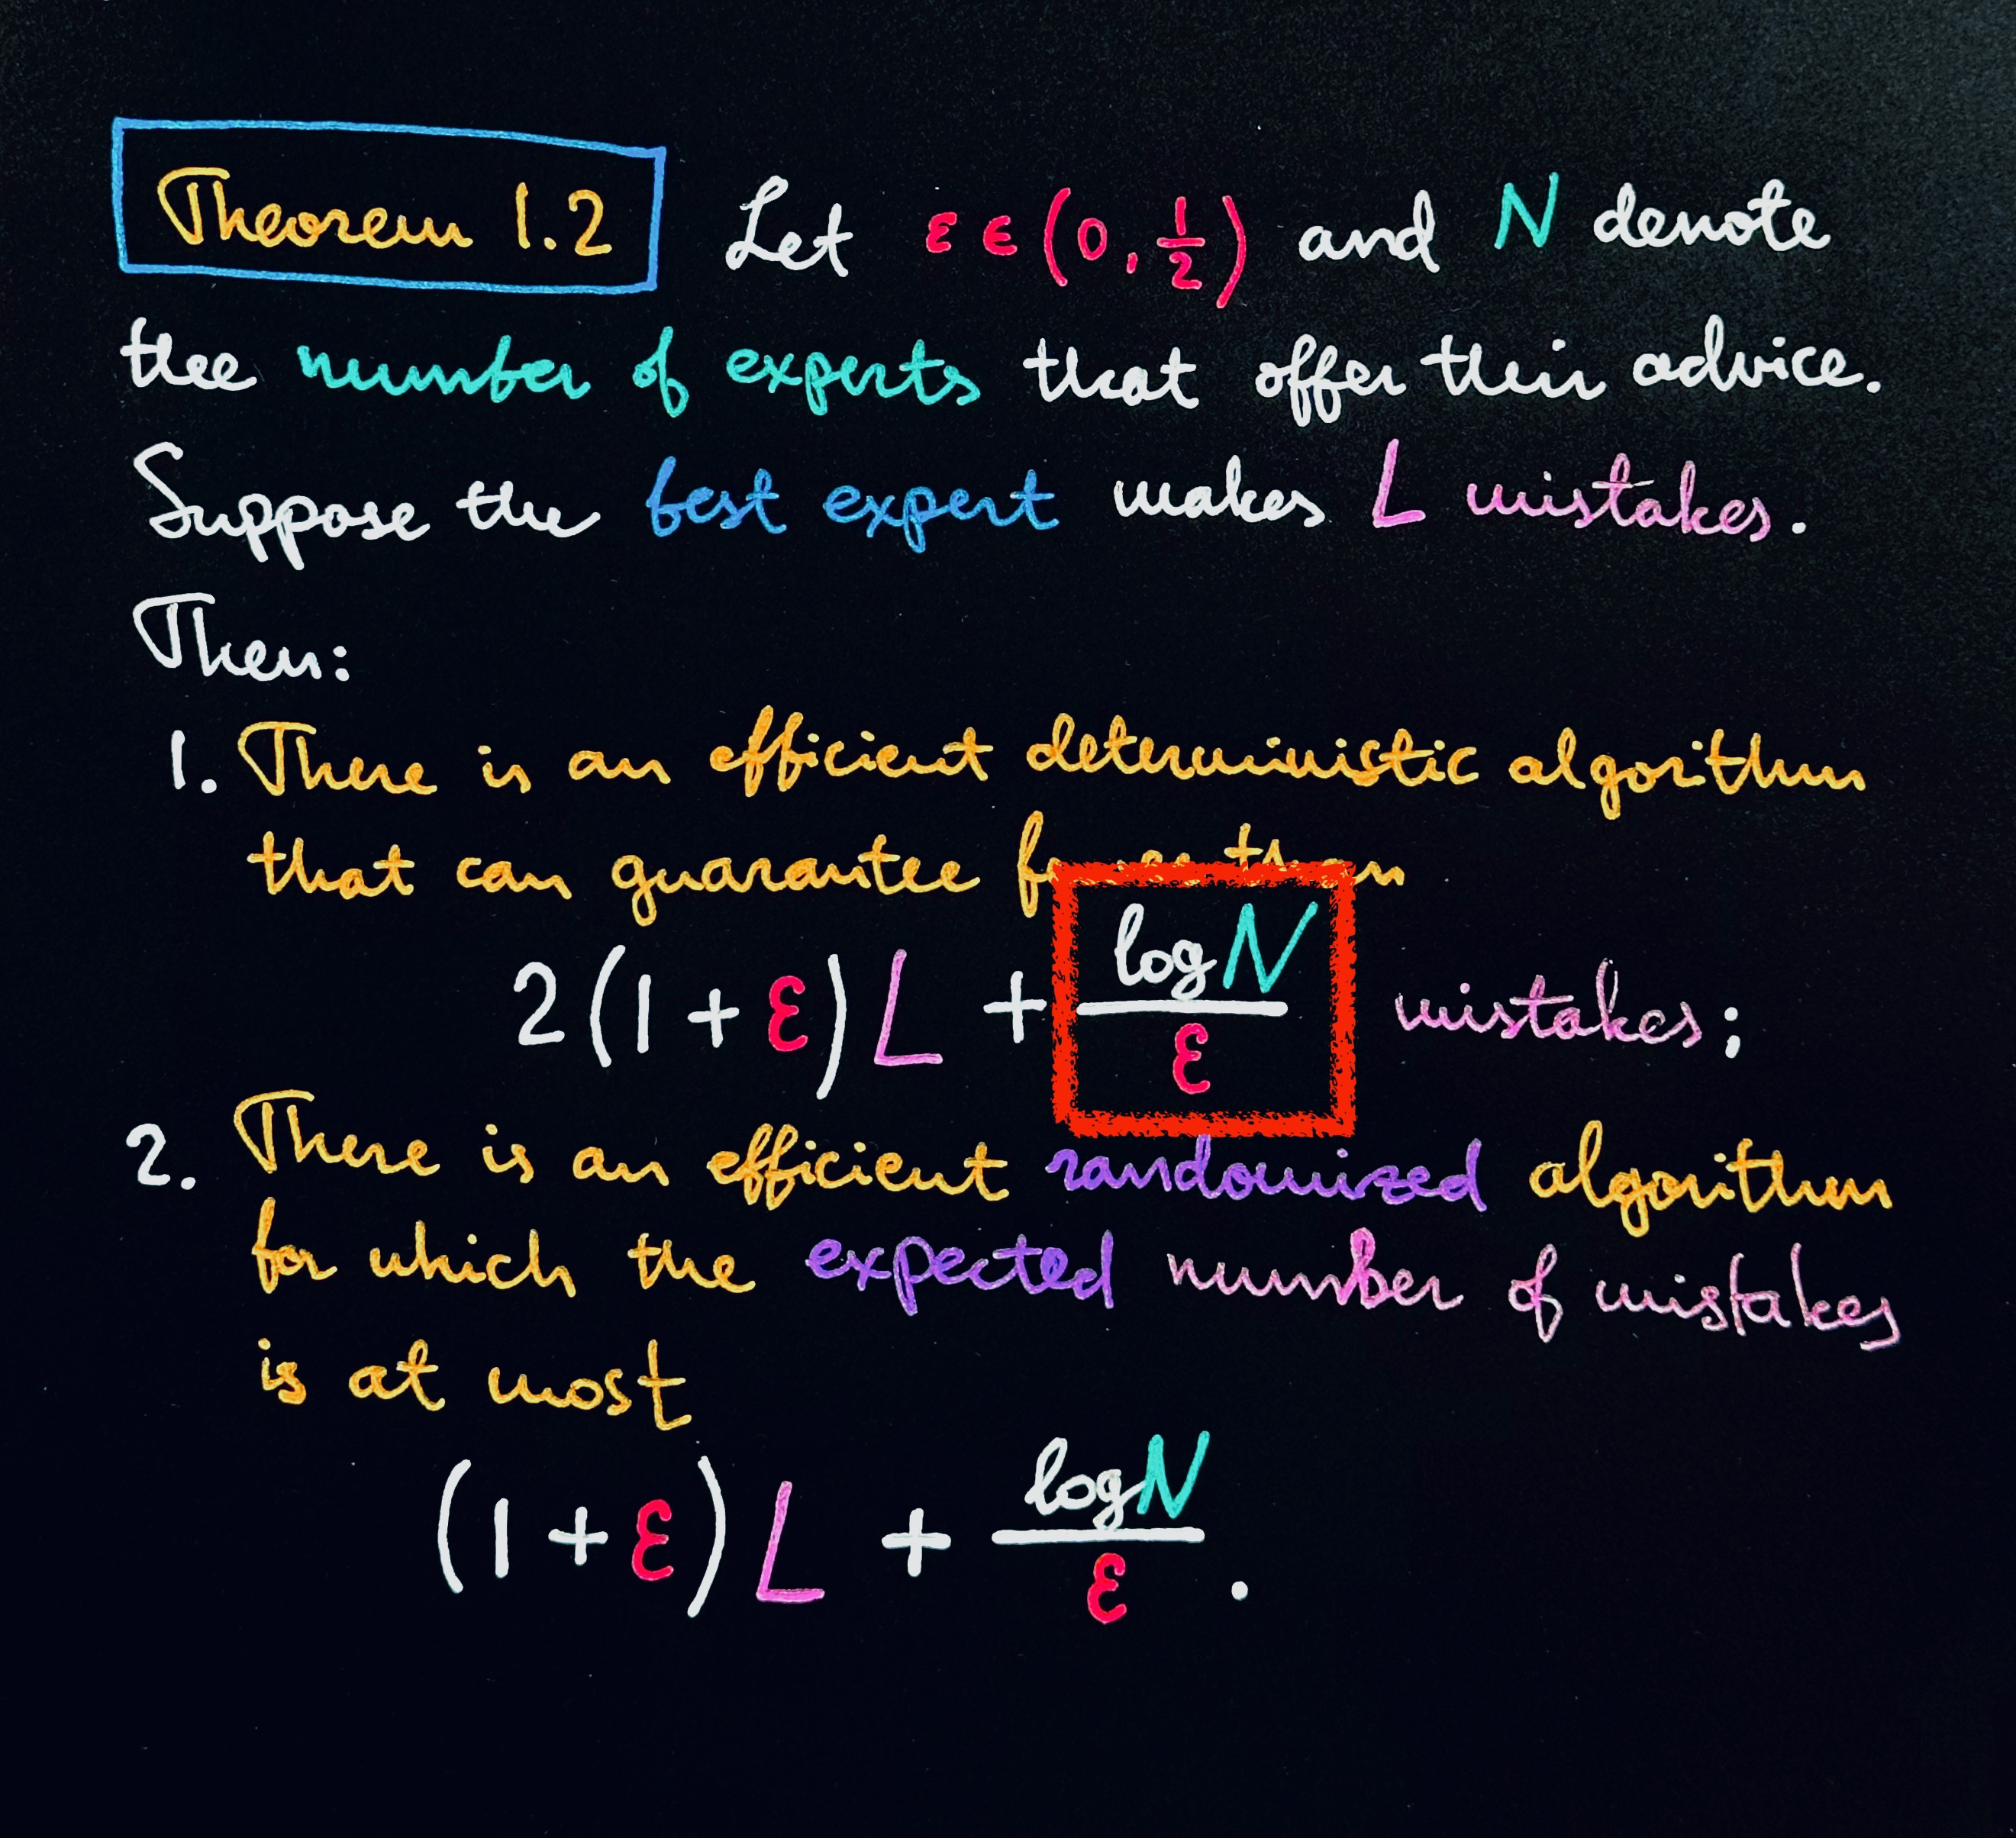 Theorem 1.2 Let ε ∈ (0, 1/2) and N denote
the number of experts that offer their advice.
Suppose the best expert makes L mistakes.
Then:
1. There is an efficient deterministic algorithm
that can guarantee
2(1 + ε)L + log N / ε mistakes;
2. There is an efficient randomized algorithm
for which the expected number of mistakes
is at most
(1 + ε)L + log N / ε.